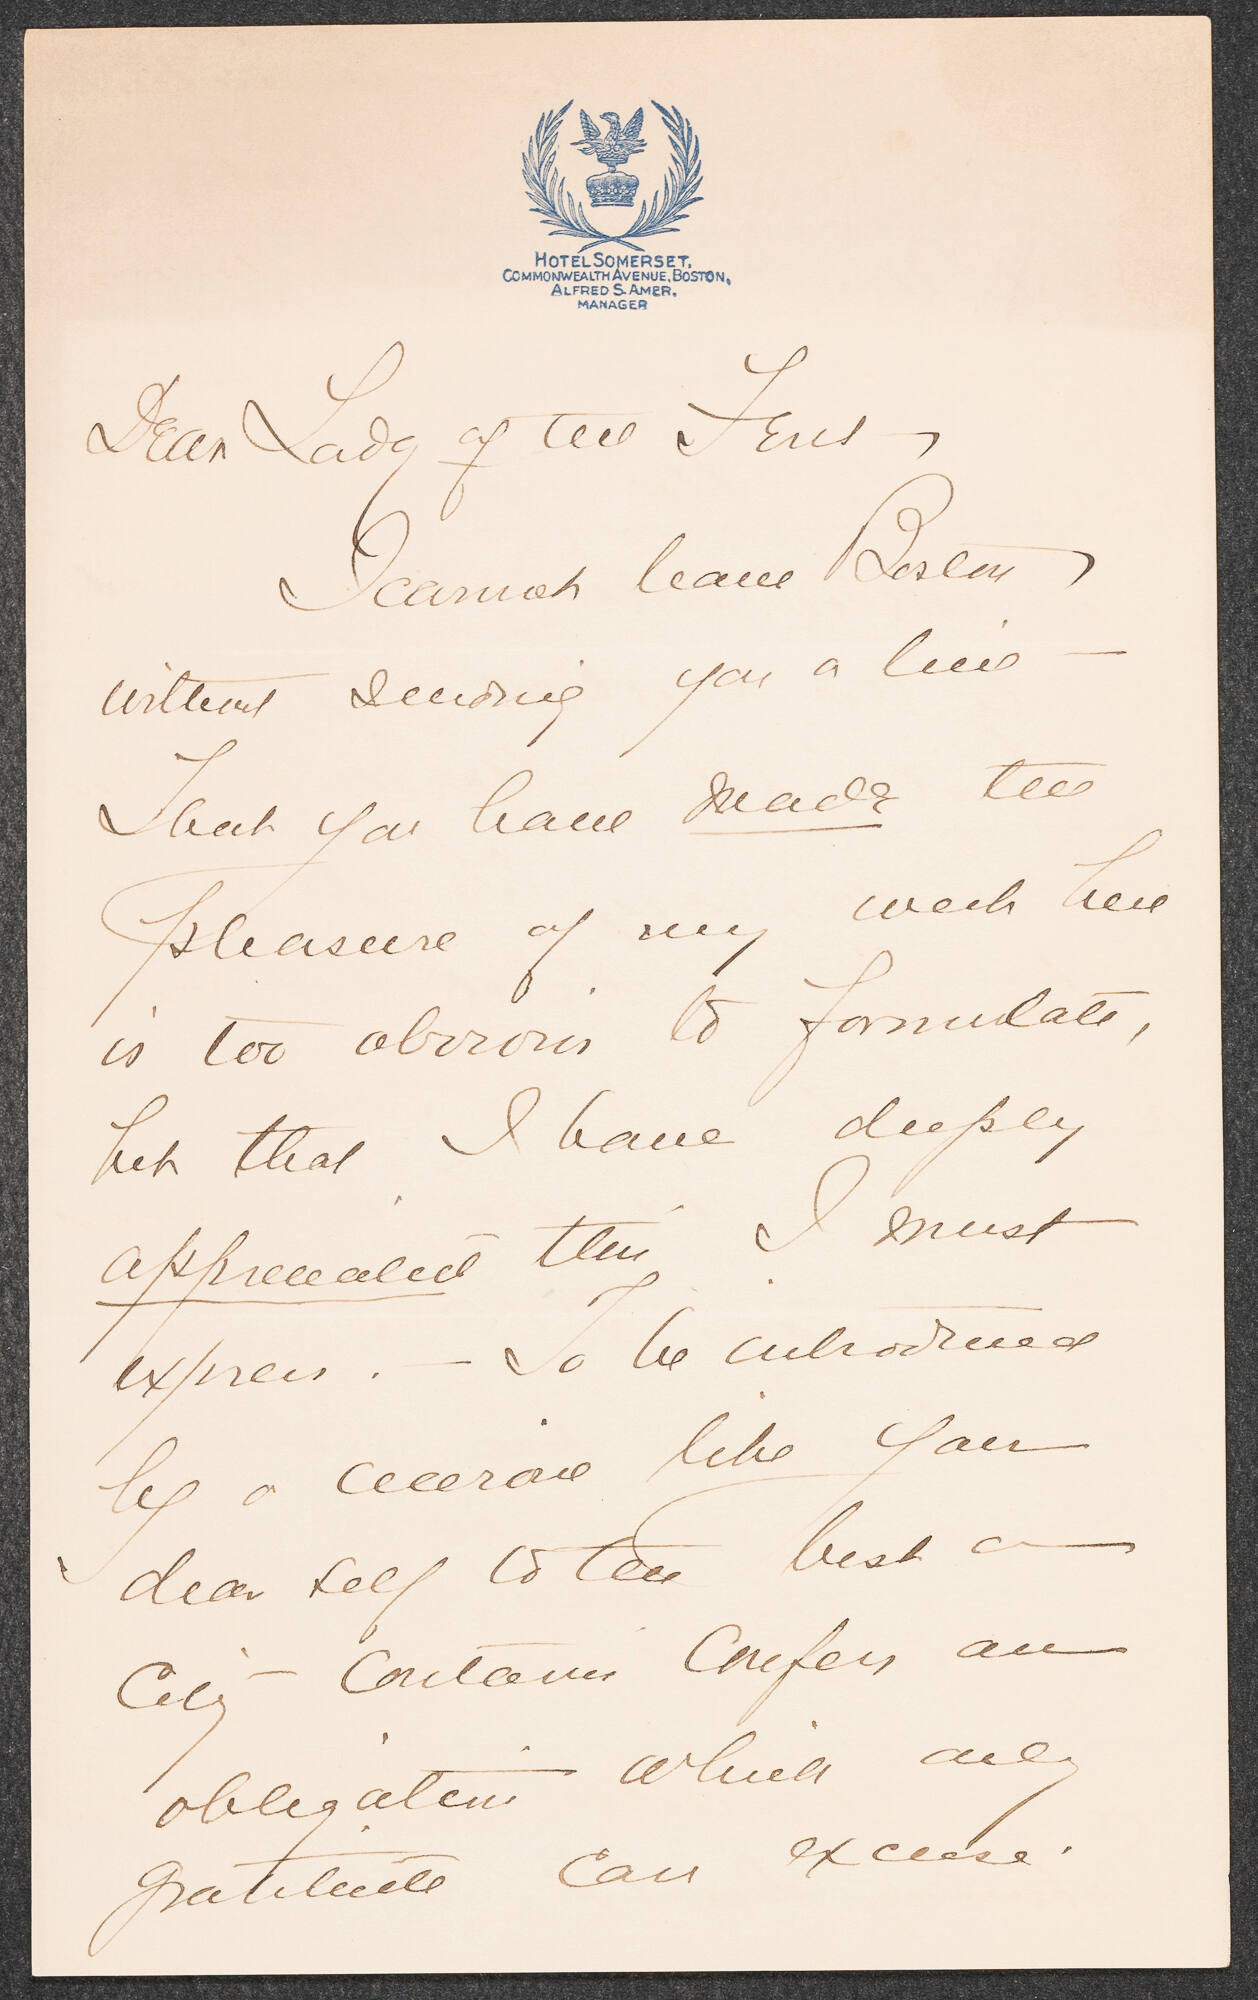 HOTEL SOMERSET,
COMMONWEALTH AVENUE, BOSTON,
ALFRED S. AMER,
MANAGER
Dear Lady of the Fens,
I cannot leave Boston,
without sending you a line –
That you have made the
pleasure of my week here
is too obvious to formulate,
but that I have deeply
appreciated this I must
express. – To be introduced
by a like your
dear self to the best a
City – contains confers an
obligation which only
gratitude can excuse.